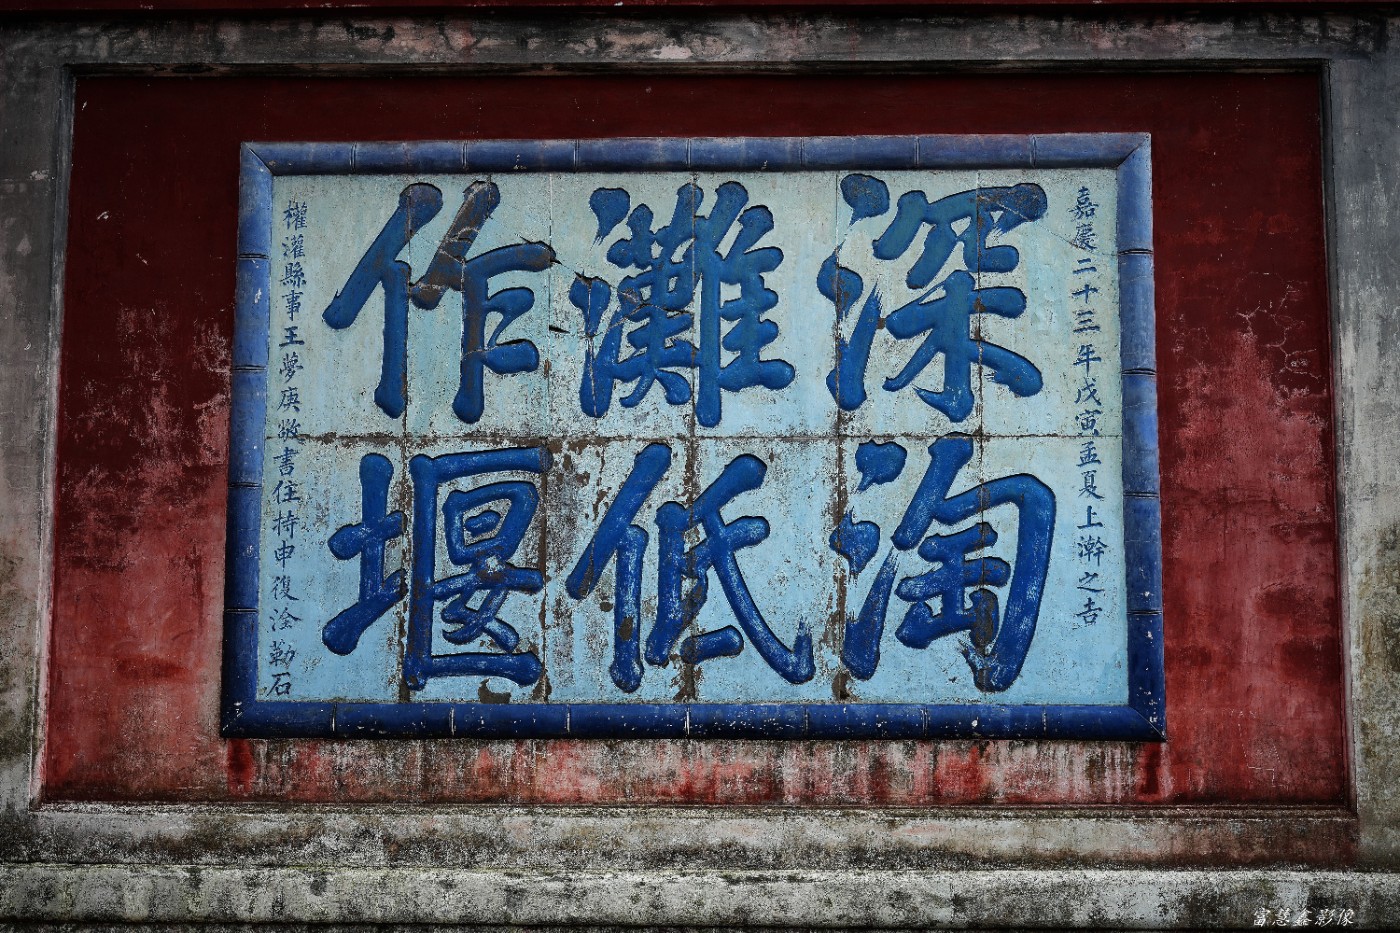 嘉慶二十三年戊寅孟夏上澣之吉
深淘
灘低
作堰
權灌縣事王夢庚敬書住持申復淦勒石
富慧鑫影像